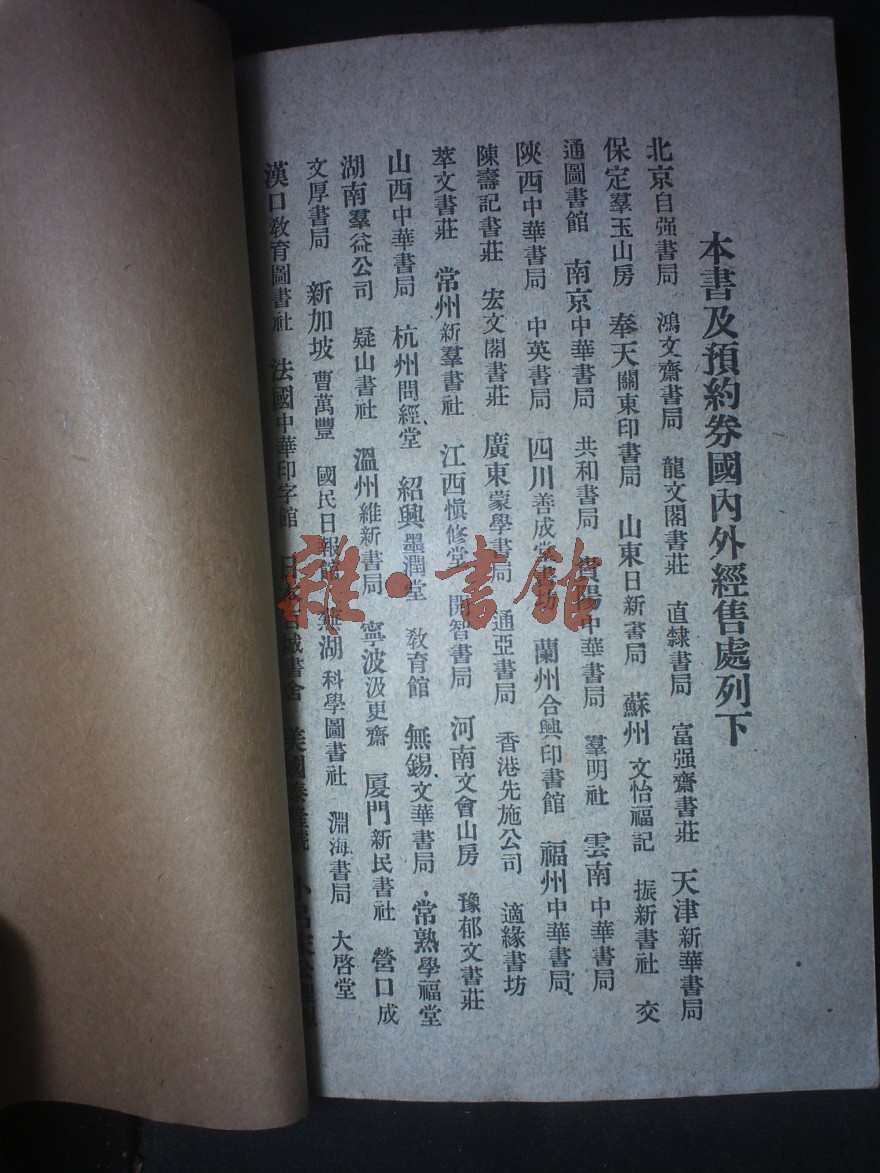 本書及預約券國內外經售處列下
北京自强書局 鴻文齋書局 龍文閣書莊 直隸書局 富强齋書莊 天津新華書局
保定羣玉山房 奉天關東印書局 山東日新書局 蘇州文怡福記 振新書社 交
通圖書館 南京中華書局 共和書局 貴陽中華書局 羣明社 雲南中華書局
陝西中華書局 中英書局 四川善成堂 蘭州合興印書館 福州中華書局
陳壽記書莊 宏文閣書莊 廣東蒙學書局 通亞書局 香港先施公司 適緣書坊
萃文書莊 常州新羣書社 江西愼修堂 開智書局 河南文會山房 豫郁文書莊
山西中華書局 杭州問經堂 紹興墨潤堂 敎育館 無錫文華書局 常熟學福堂
湖南羣益公司 疑山書社 溫州維新書局 寧波汲更齋 厦門新民書社 營口成
文厚書局 新加坡曹萬豐 國民日報館 蕪湖科學圖書社 淵海書局 大啓堂
漢口敎育圖書社 法國中華印字館 書舍 美國
雜·書館